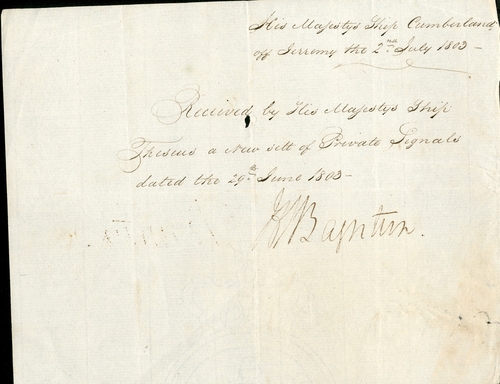 His Majestys Ship Cumberland,
off Jerremy the 2nd July 1803 -
Received by His Majestys Ship
Theseus a New sett of Private Signals
dated the 29th June 1803 -
HW Bayntun.